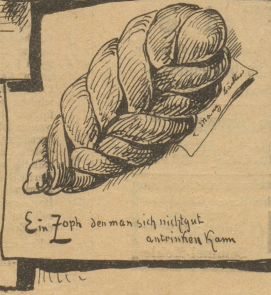 Ein Zoph den man sich nicht gut
antrinken kann